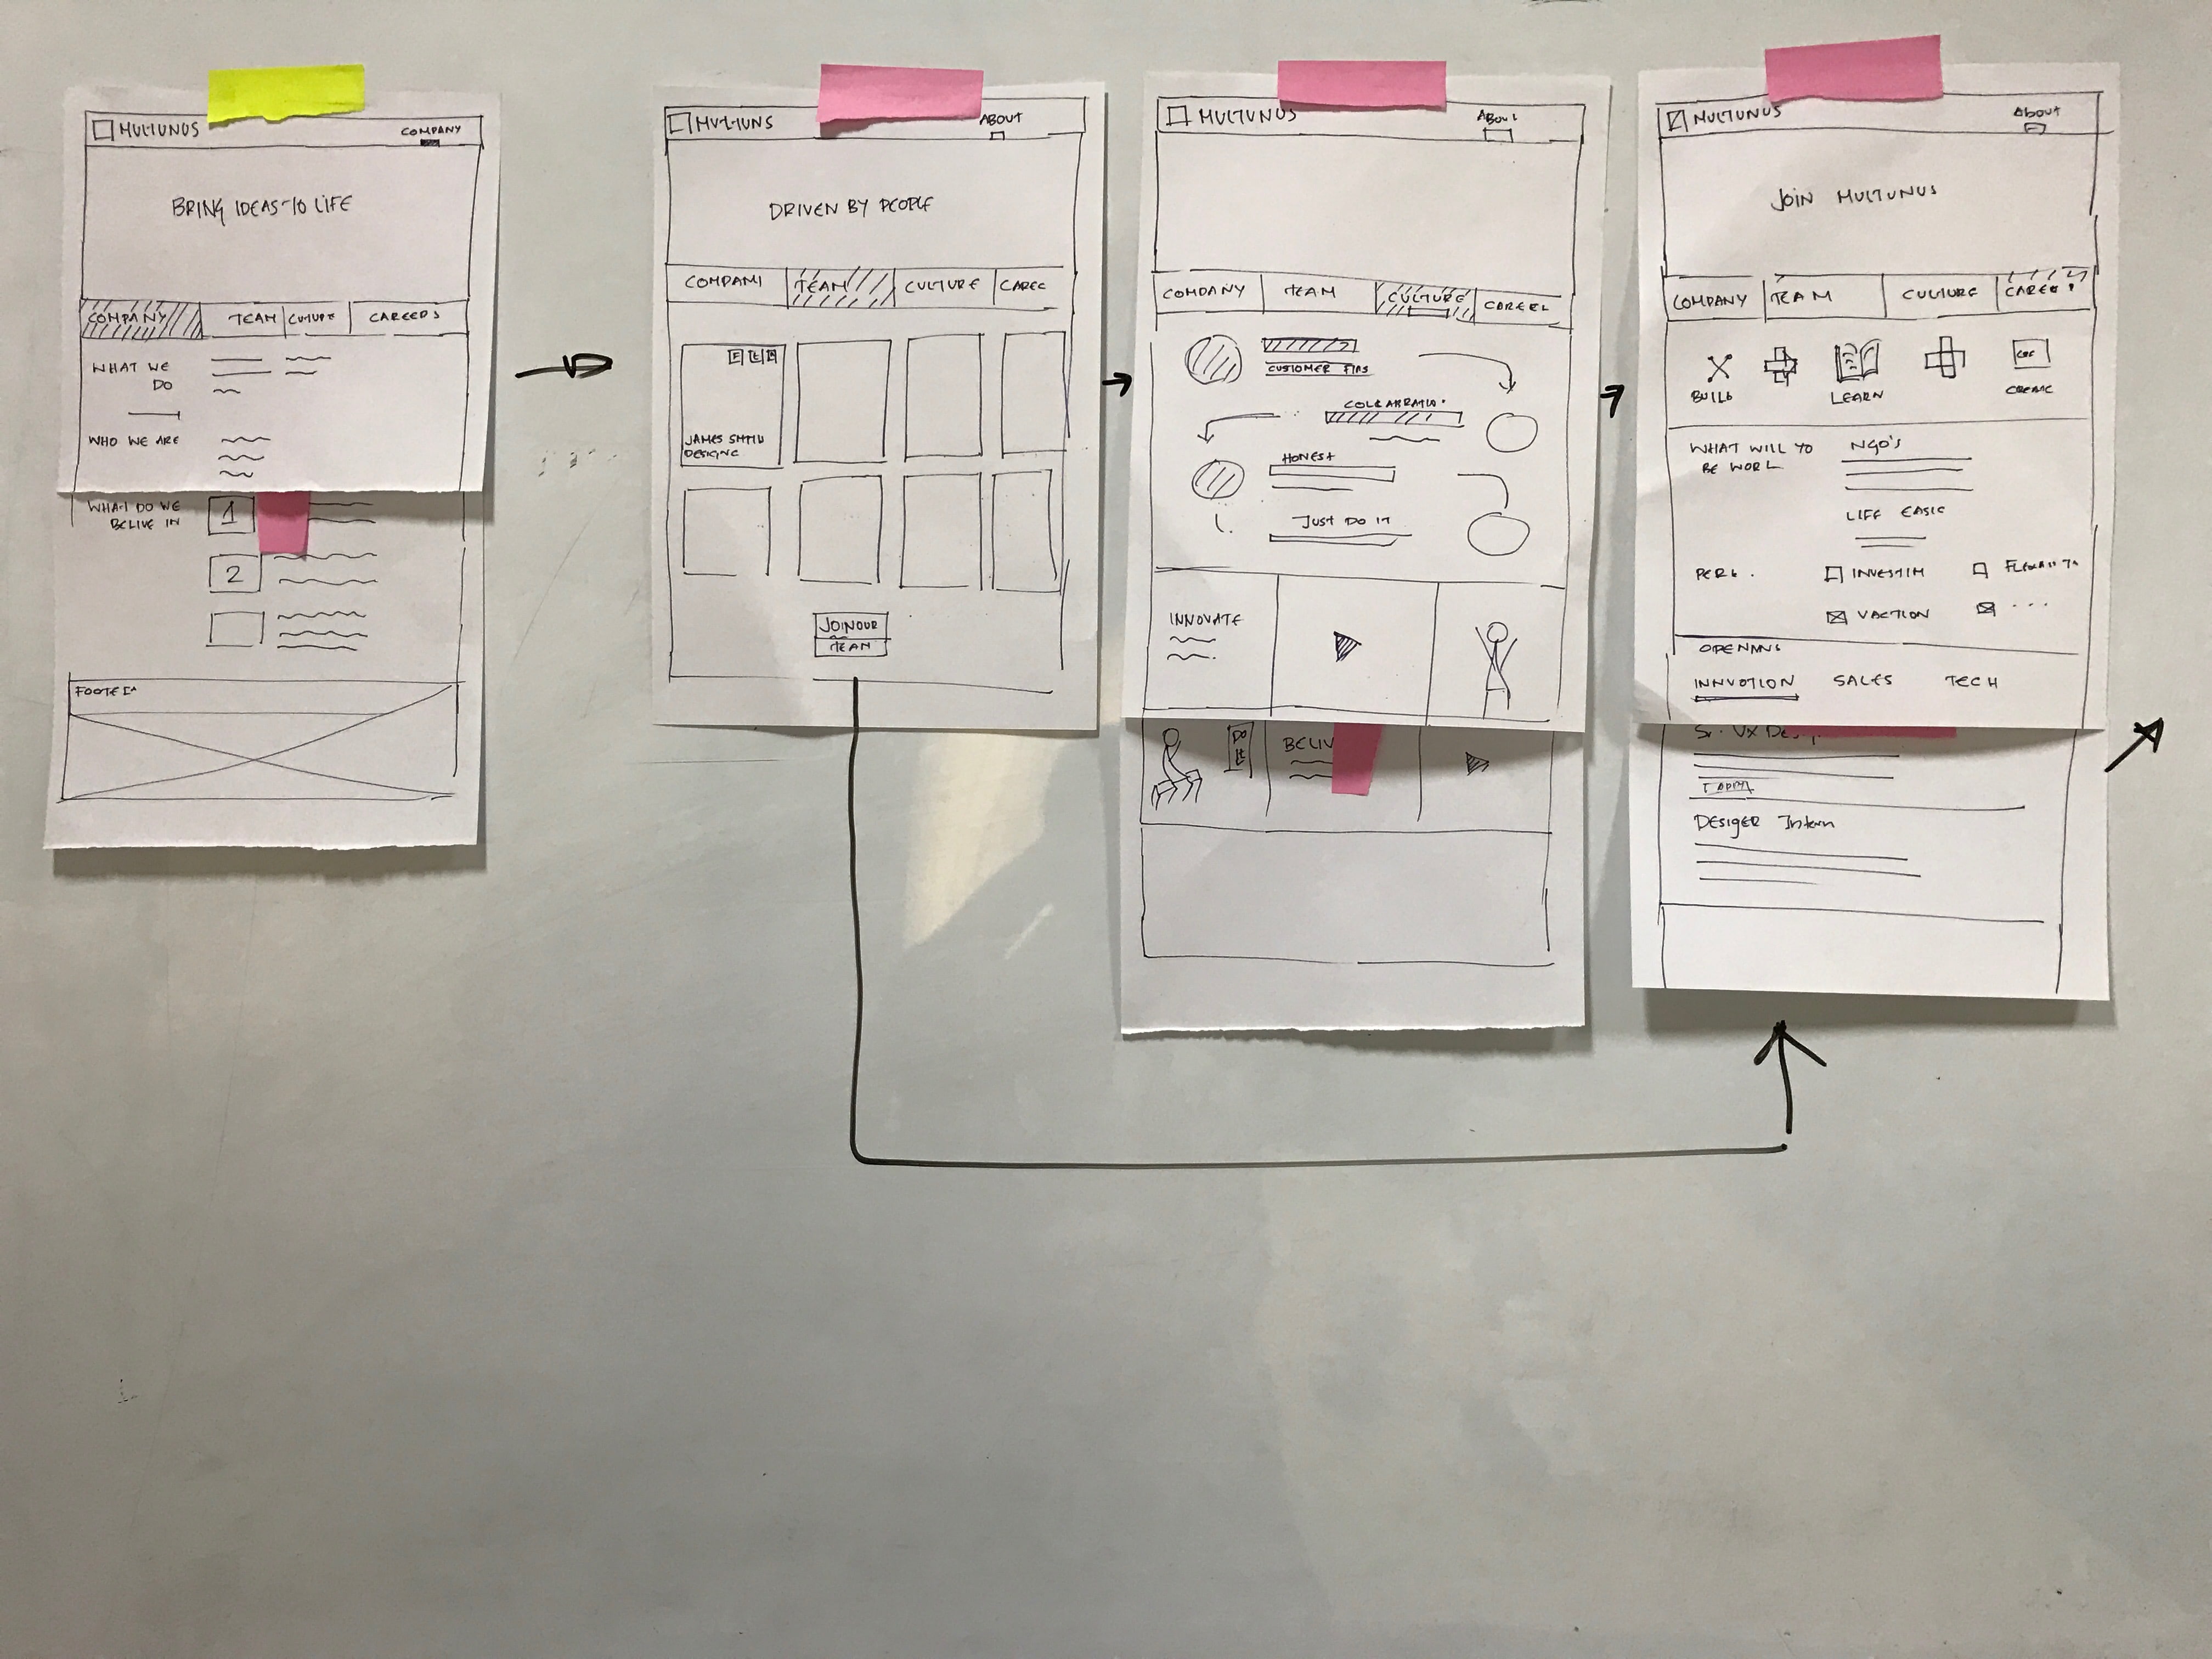 MULTUNUS
COMPANY
BRING IDEAS TO LIFE
COMPANY TEAM CULTURE CAREERS
WHAT WE
DO
WHO WE ARE
WHAT DO WE
BELIVE IN
1
2
FOOTER
MULTUNS
ABOUT
DRIVEN BY PEOPLE
COMPANI TEAM CULTURE CAREE
JAMES SMITH
DESIGNE
JOIN OUR
TEAM
MULTUNUS
ABOUT
COMPANY TEAM CULTURE CAREER
CUSTOMER FIRS
HONEST
JUST DO IT
INNOVATE
DO
IT
BELIV
MULTUNUS
About
JOIN MULTUNUS
COMPANY TEAM CULTURE CAREER
BUILD LEARN CREATE
WHAT WILL YO
BE WORK
NGO'S
LIFE EASIE
PERK.
INVESTIM
VACTION ...
OPENINS
INNVOTION SALES TECH
Sr. UX Desig
APPLY
DESIGER Intern